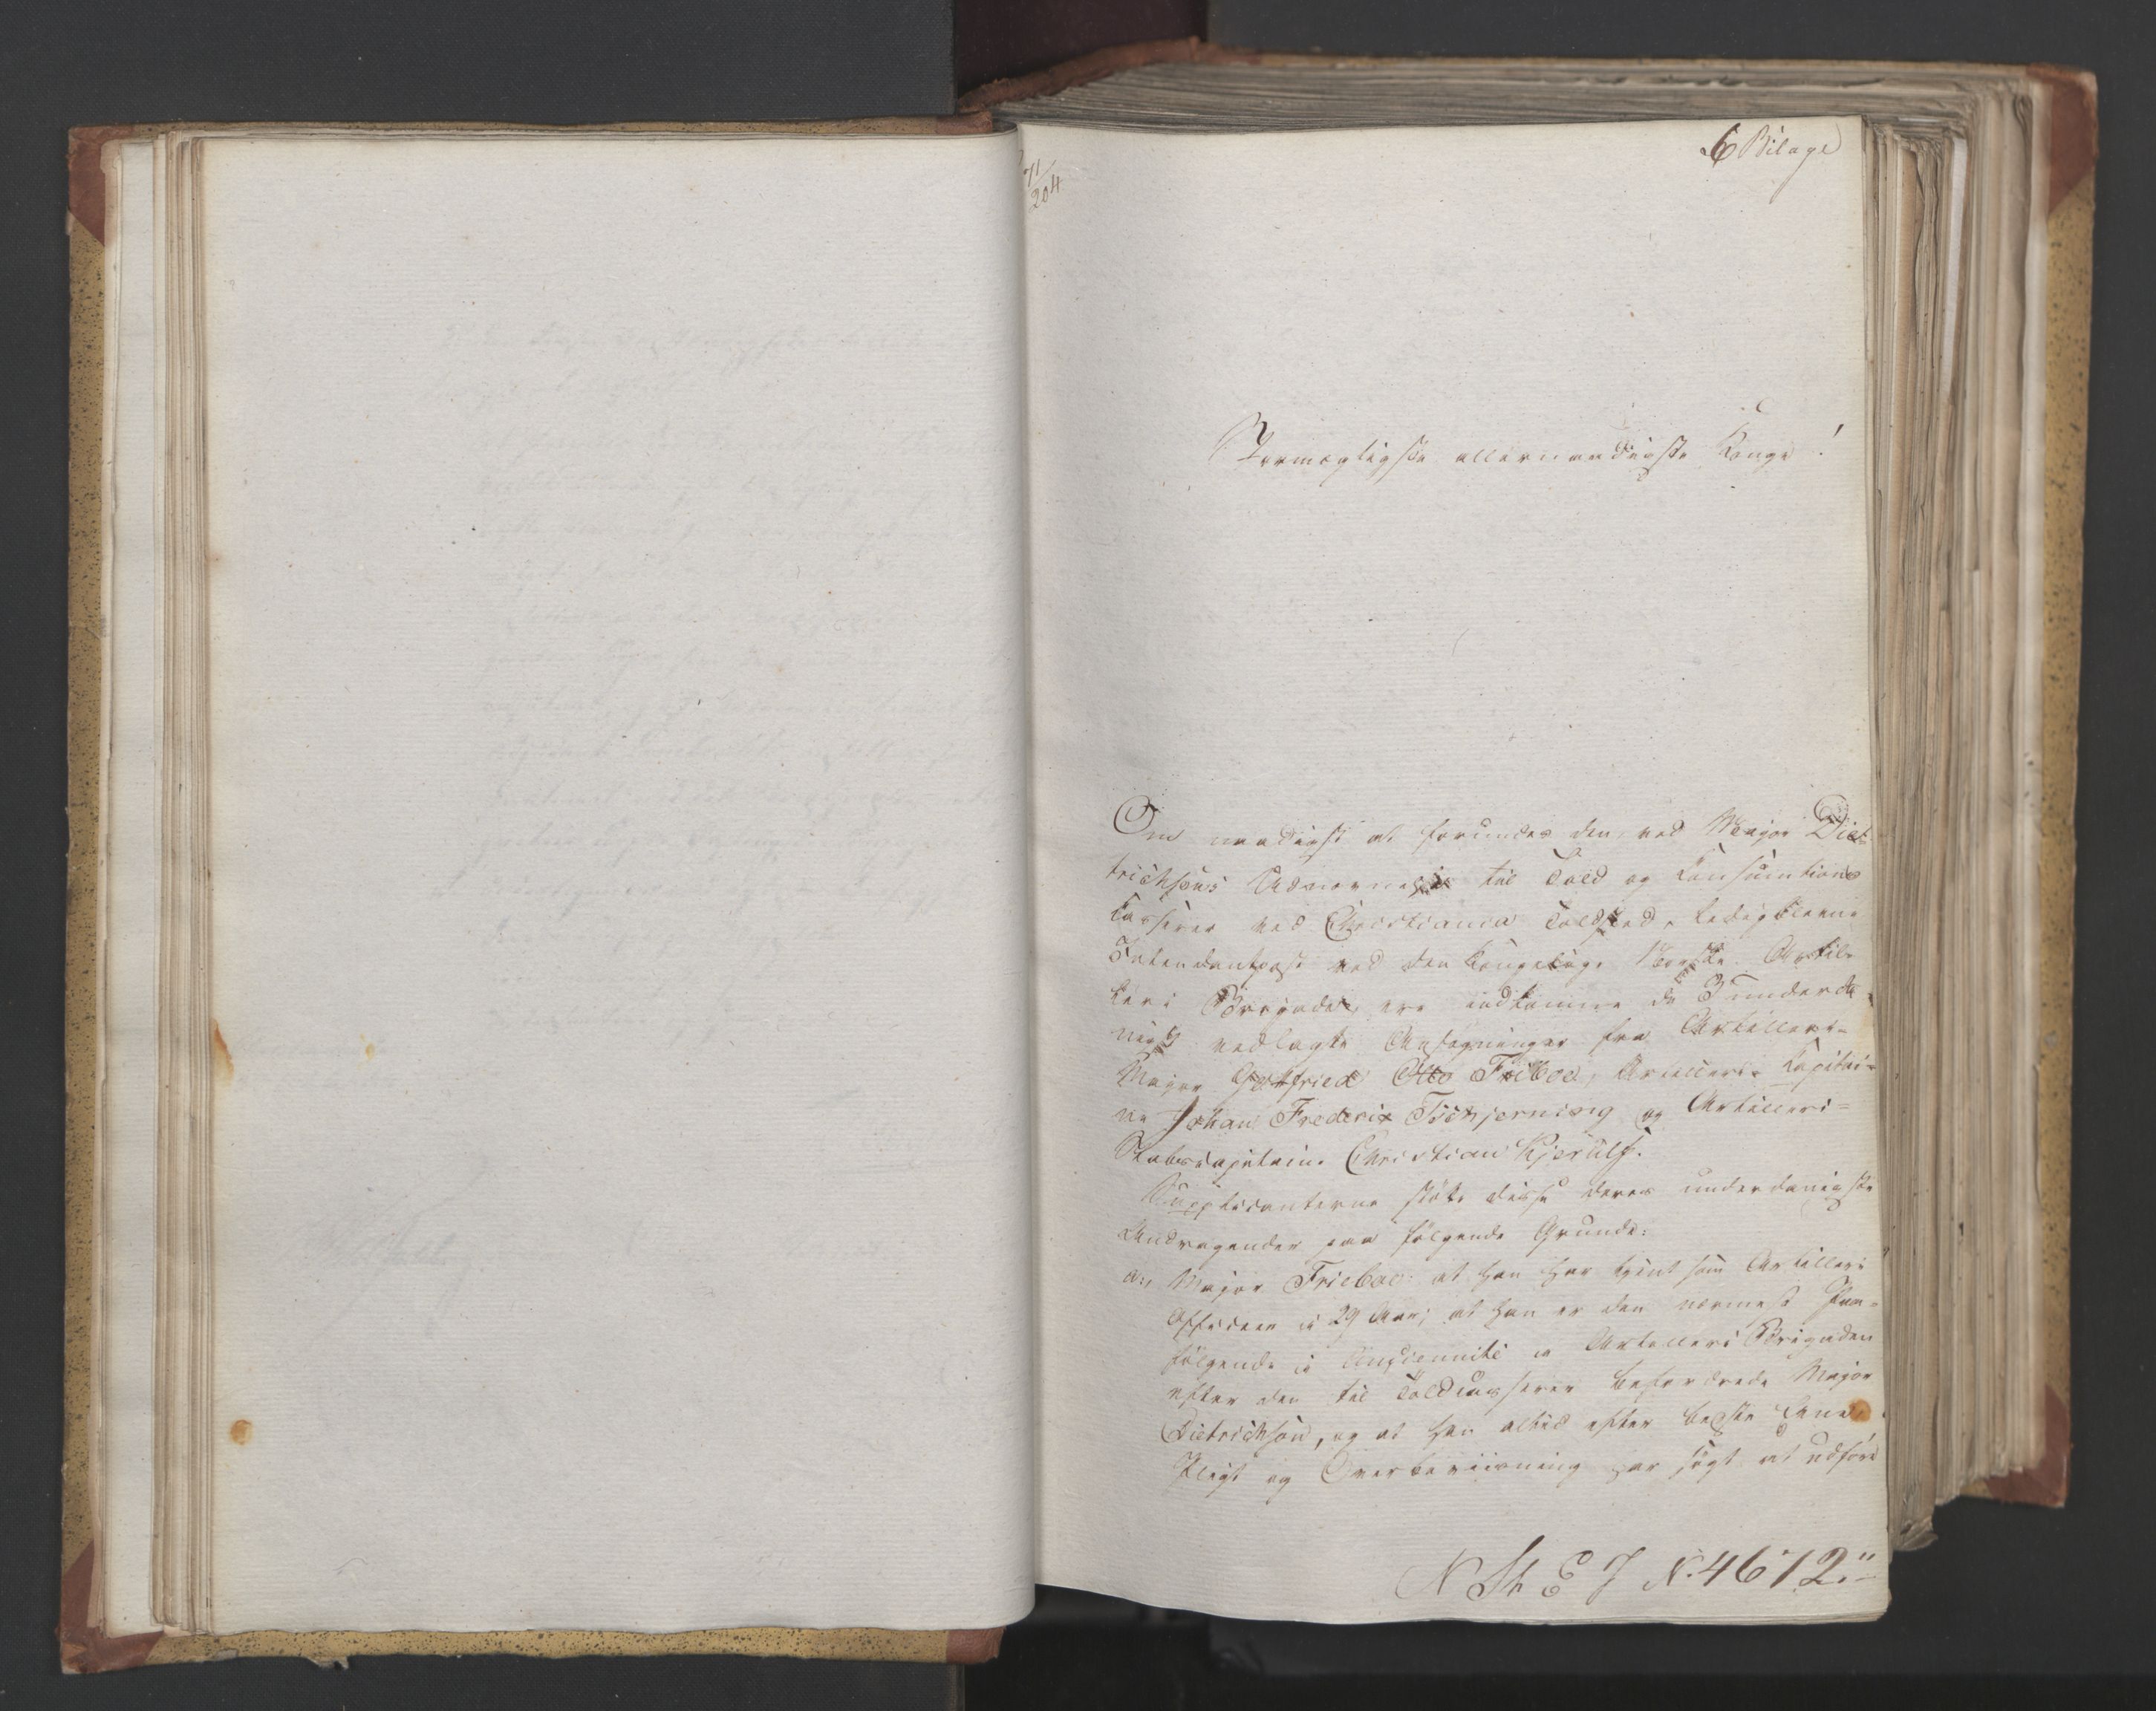 6 Bilage
71/204
Stormægtigste allernaadigste Konge!
Om naadigst at forundes den, ved Major Diet-
trichsons Udnævnelse til Told og Consumtions
Kasserer ved Christiania Toldsted, ledigblevne
Intendantpost ved den Kongelige Norske Artil-
leri Brigade, ere indkomne de 3 underda-
nigst vedlagte Ansøgninger fra Artilleri-
Major Gotfried Otto Frieboe, Artilleri-Kapitai-
ne Johan Frederix Tschjerning og Artilleri-
Stabscapitaine Christian Kjerulf.
Supplicanterne støtte disse deres underdanigste
Andragender paa følgende Grunde:
a., Major Frieboe: at han har tjent som Artilleri
Officeer i 29 Aar; at han er den nærmest Paa-
følgende i Anciennité i Artilleri Brigaden
efter den til Toldkasserer befordrede Major
Dietrichson, og at han altid efter bedste Evne,
Pligt og Overbeviisning har søgt at udføre
N St E J N: 4672.